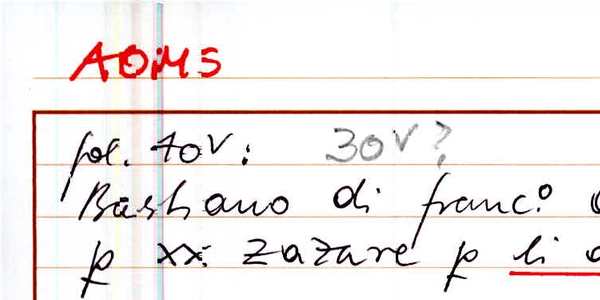 AOMS
fol. 70v: 30v?
Bastiano di franc.o
p xx: zazare p li